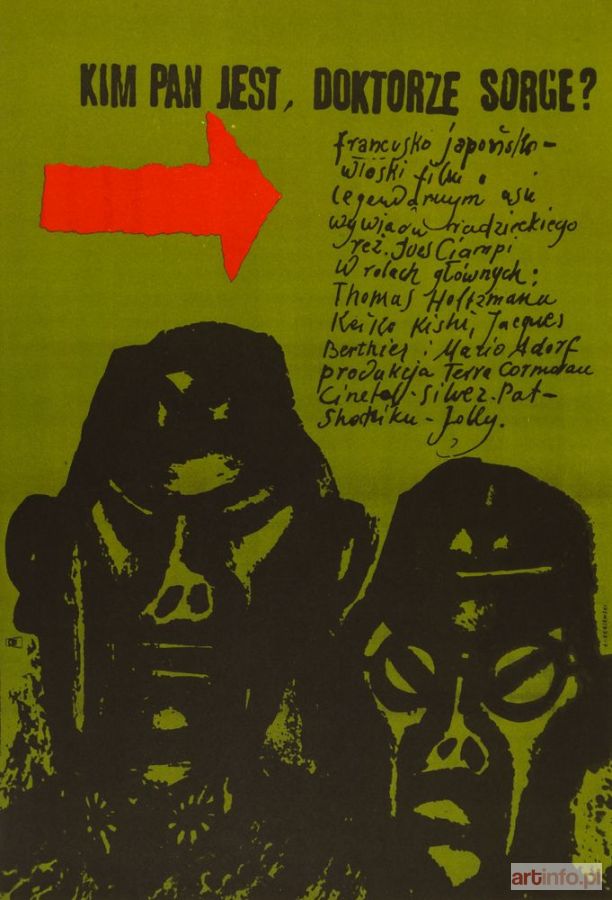 KIM PAN JEST, DOKTORZE SORGE?
francusko japońsko-
włoski film o
legendarnym asie
wywiadu radzieckiego
reż. Yves Ciampi
W rolach głównych:
Thomas Holtzmann
Keiko Kishi, Jacques
Berthier i Mario Adorf
produkcja Terra Cormoran
Cinetel-Silver-Pat-
Shotiku-Jolly.
artinfo.pl